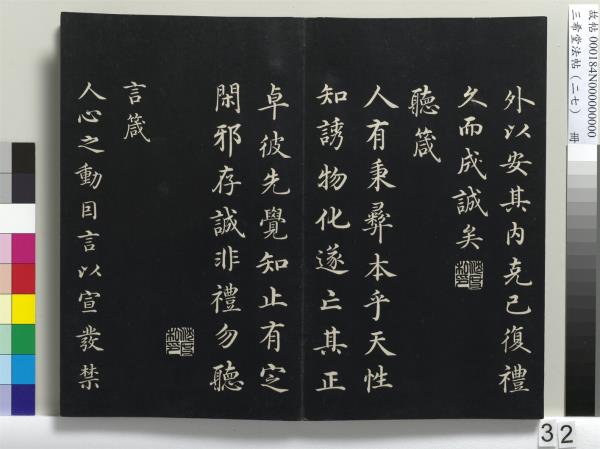 外以安其内克己復禮
久而成誠矣
聽箴
人有秉彛本乎天性
知誘物化遂亡其正
卓彼先覺知止有定
閑邪存誠非禮勿聽
言箴
人心之動因言以宣發禁
故帖 000184N000000000
三希堂法帖(二七) 冊
32